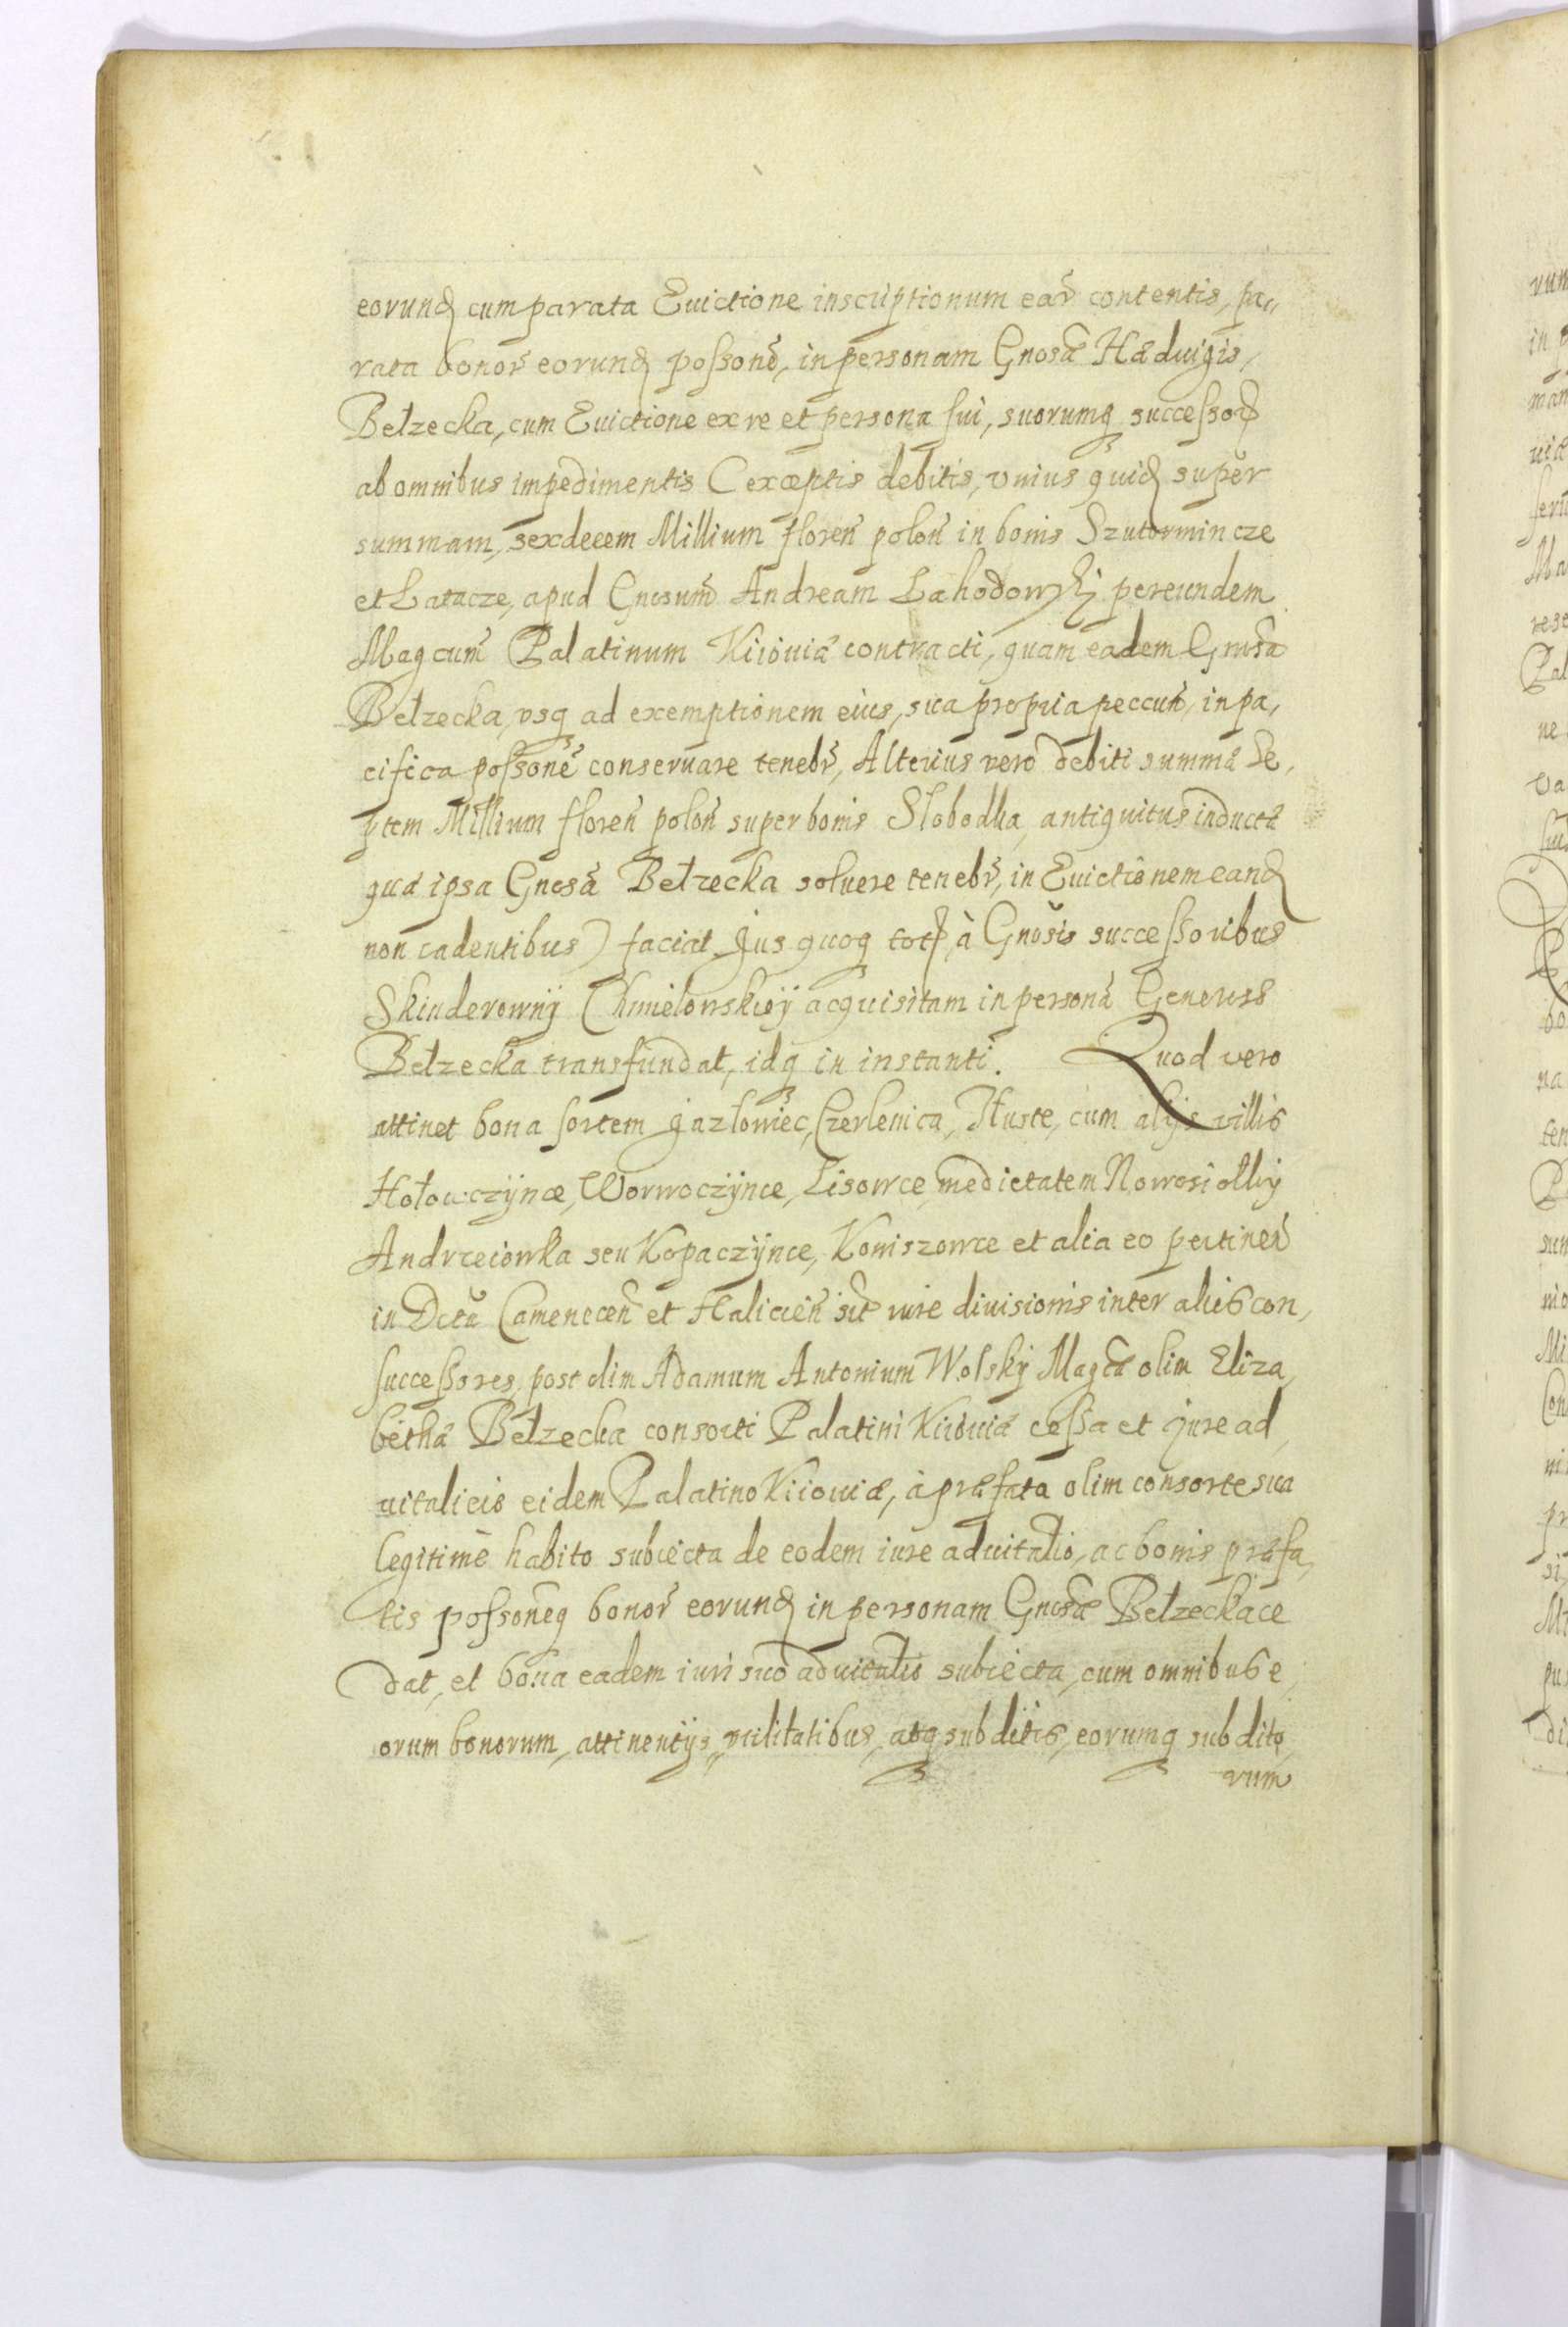 eorund cum parata Euictione inscriptionum ear contentis, pa,,
rata bonor eorund possone, in personam Gnosæ Hæduigis,
Bełzecka, cum Euictione ex re et persona sui, suorumq successor
ab omnibus impedimentis (exceptis debitis, vnius quid super
summam, sexdecem Millium floren polon in bonis Szutormincze
et Latacze, apud Gnosum Andream Lahodowskj per eundem
Magcum Palatinum Kiiouiæ contracti, quam eadem Gnosa
Bełzecka, vsq ad exemptionem eius, sua propria peccun, in pa,
cifica possone conseruare tenebr, Alterius vero debiti summæ Se,
ptem Millium floren polon super bonis Slobodka, antiquitus inductæ
quæ ipsa Gnosa Bełzecka soluere tenebr, in Euictionem eand
non cadentibus) faciat Jus quoq tot à Gnosis successoribus
Skinderowny Chmielowskiey acquisitam in persona Generosæ
Bełzecka transfundat, idq in instanti. Quod vero
attinet bona sortem Jazłowiec, Czerlenica, Huste, cum alijs villis
Hołowczÿnce, Worwoczÿnce, Lisowce, medietatem Nowosiołkÿ
Andrzeiowka seu Kopaczÿnce, Koniszowce et alia eo pertinen
in Dctu Camenecen et Halicien sit iure diuisionis inter alios con,
successores, post olim Adamum Antonium Wolskÿ Magcæ olim Eliza,
bethæ Bełzecka consorti Palatini Kiiouiæ cessa et Jure ad,
uitalicio eidem Palatino Kiiouiæ, à præfata olim consorte sua
legitimè habito subiecta de eodem iure aduitalio, ac bonis præfa,
tis possoneq bonor eorund in personam Gnosæ Bełzecka ce
dat, et bona eadem iuri suo aduitalio subiecta, cum omnibus e,
orum bonorum, attinentijs, vtilitatibus, atq subditis, eorumq subdito
rum